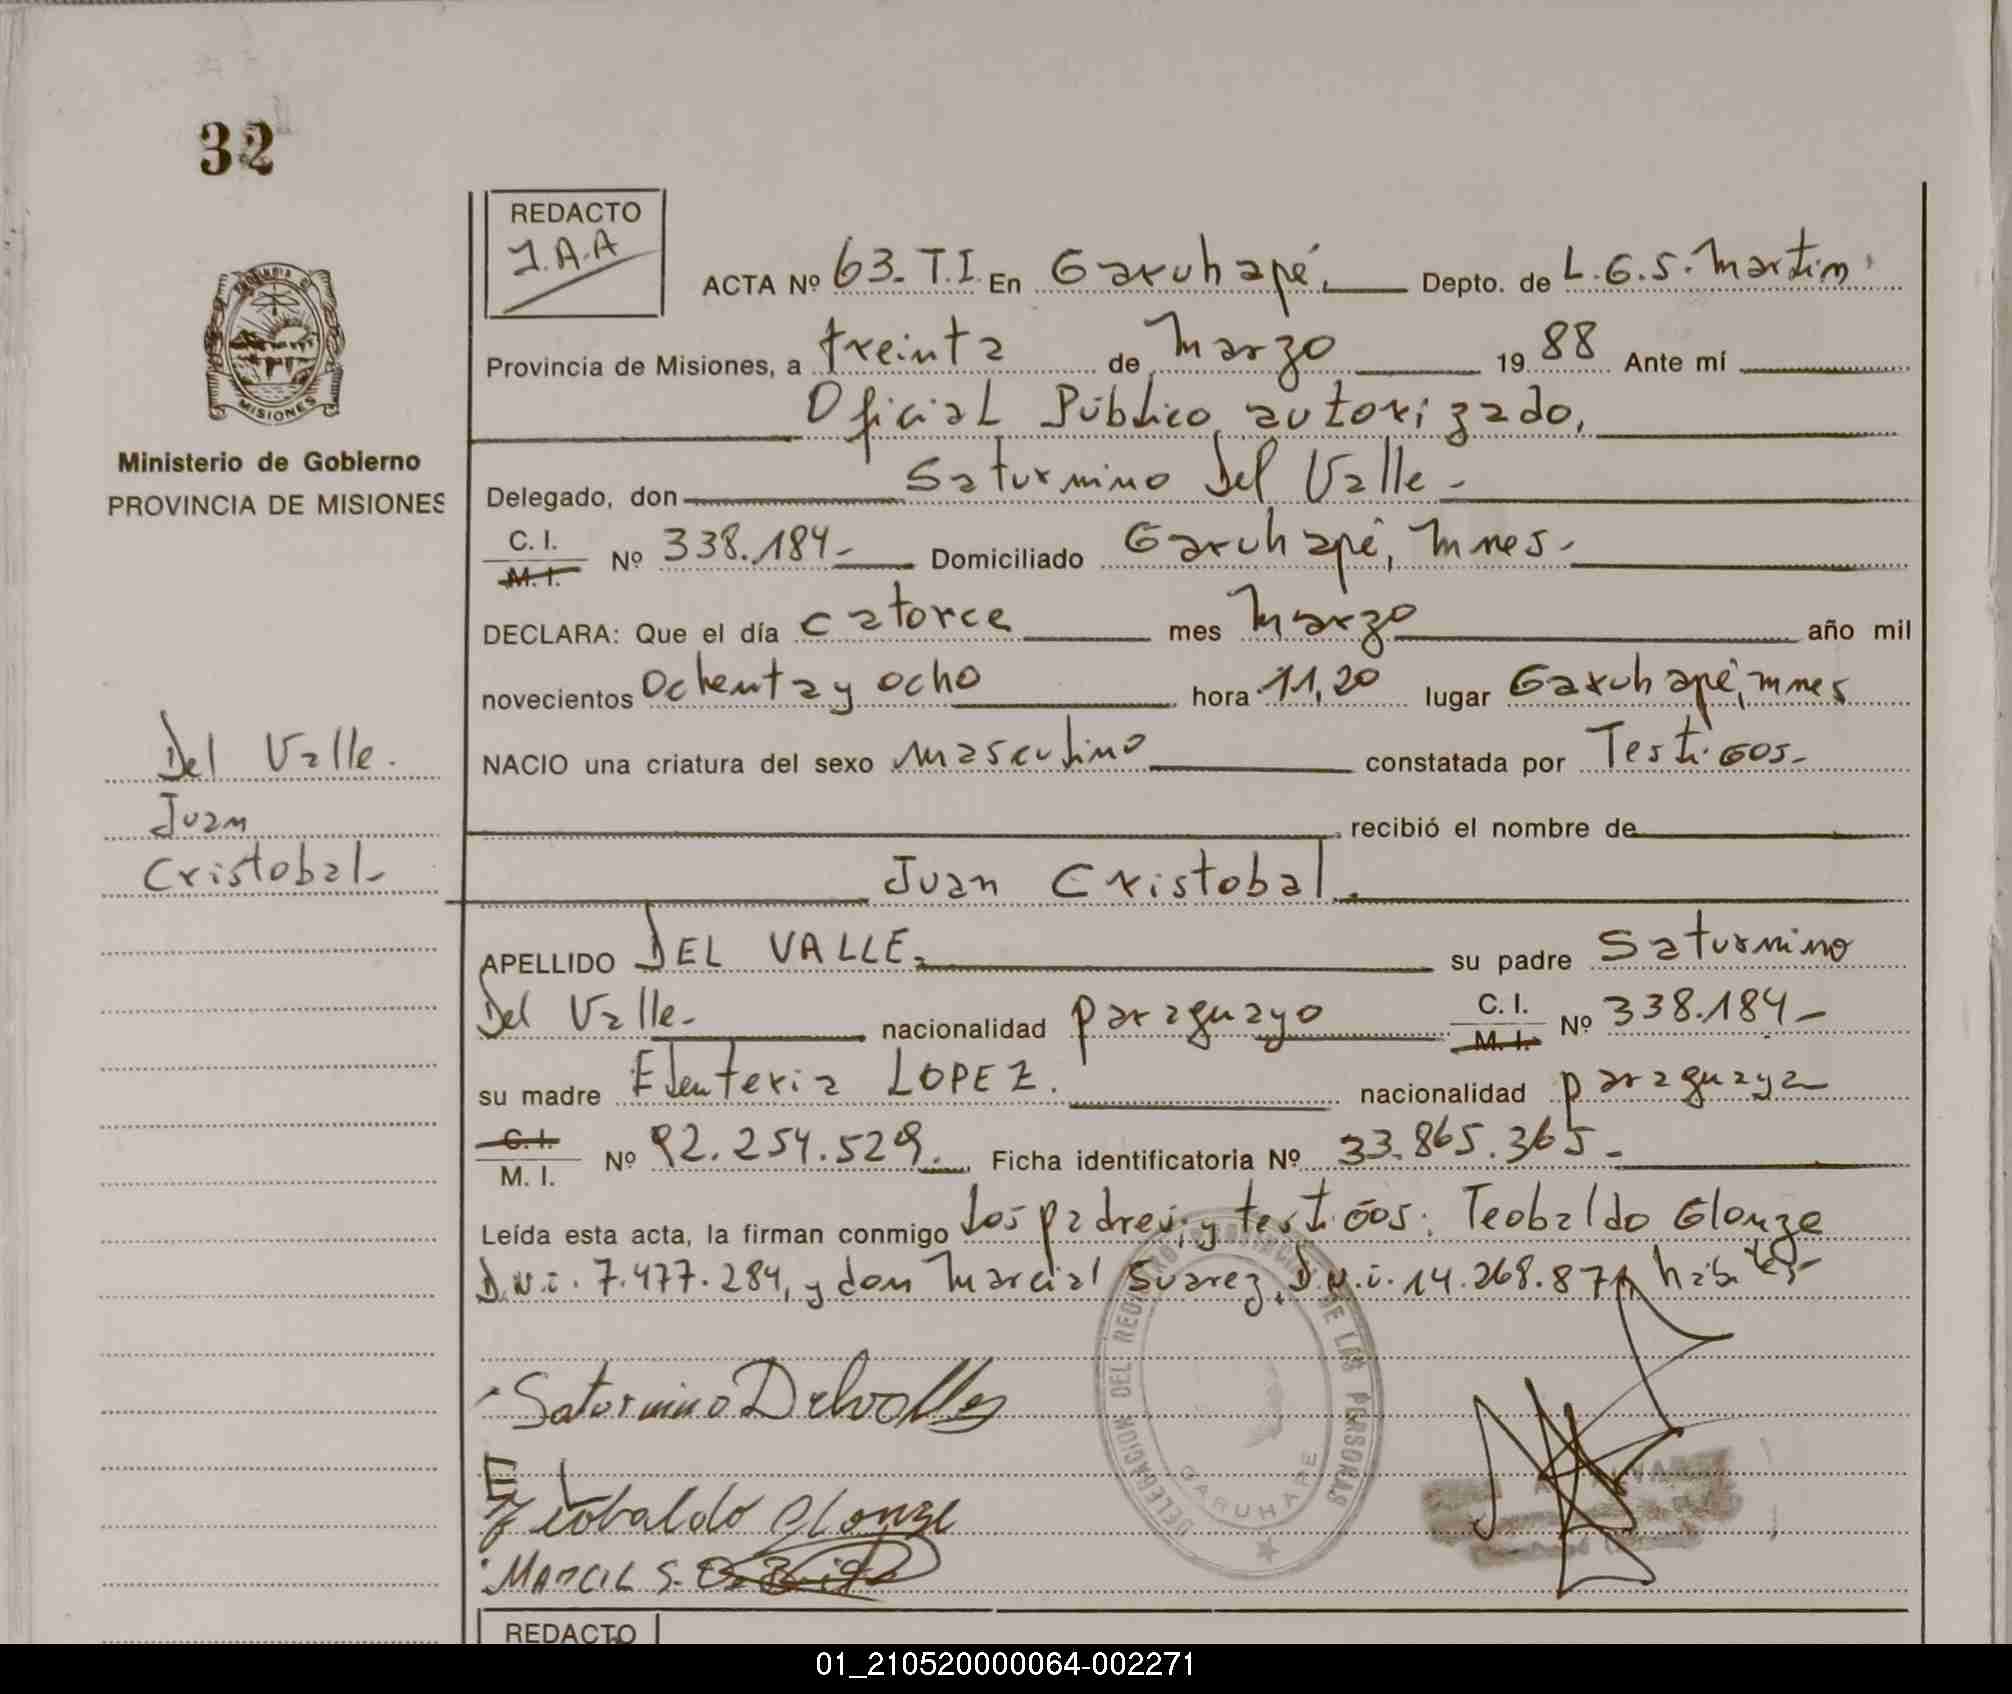 32
REDACTO
J.A.A
ACTA Nº 63. T.I. En Garuhapé, Depto. de L.G.S. Martin
Provincia de Misiones, a treinta de Marzo 19 88 Ante mí
Oficial Público autorizado,
MISIONES
Ministerio de Gobierno
PROVINCIA DE MISIONES
Delegado, don Saturnino Del Valle-
C. I.
M. I. Nº 338.184- Domiciliado Garuhapé, Mnes-
DECLARA: Que el día catorce mes Marzo año mil
novecientos Ochenta y ocho hora 11,20 lugar Garuhapé, Mnes
NACIO una criatura del sexo masculino constatada por Testigos-
recibió el nombre de
Juan Cristobal.
Del Valle.
Juan
Cristobal-
APELLIDO DEL VALLE, su padre Saturnino
Del Valle- nacionalidad paraguayo C. I.
M. I. Nº 338.184-
su madre Eleuteria LOPEZ. nacionalidad paraguaya
C. I.
M. I. Nº 92.254.529. Ficha identificatoria Nº 33.865.365-
Leída esta acta, la firman conmigo los padres, y testigos: Teobaldo Glonze
D.N.i. 7.477.284, y don Marcial Suarez, D.N.i. 14.268.871, habiles-
Saturnino Delvalle
E L
Teobaldo Glonze
MARCIL S.
DELEGACION DEL REGISTRO PROVINCIAL DE LAS PERSONAS
GARUHAPE
REDACTO
01_210520000064-002271